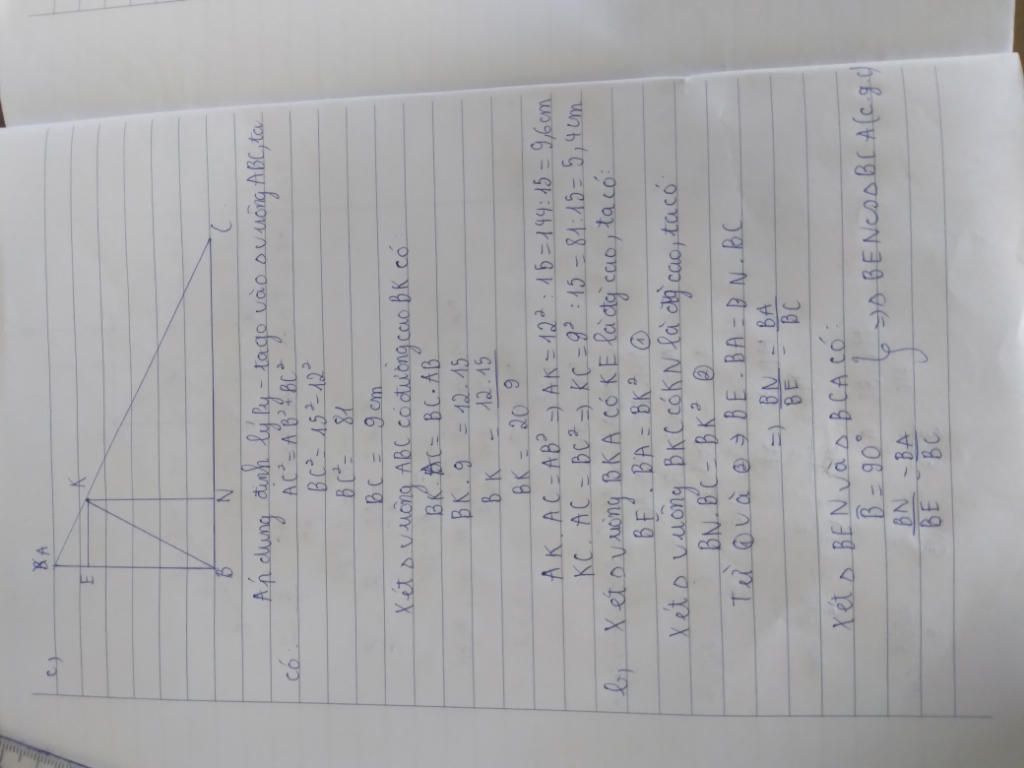 c)
A
E
K
B
N
C
Áp dụng định lý Py-tago vào △ vuông ABC, ta
có:
AC² = AB² + BC²
BC² = 15² - 12²
BC² = 81
BC = 9cm
Xét △ vuông ABC có đường cao BK có:
BK. AC = BC. AB
BK. 9 = 12. 15
BK = 12.15/9
BK = 20
AK. AC = AB² => AK = 12² : 15 = 144:15 = 9,6cm
KC. AC = BC² => KC = 9² : 15 = 81:15 = 5,4cm
b, Xét △ vuông BKA có KE là đg cao, ta có:
BE. BA = BK² ①
Xét △ vuông BKC có KN là đg cao, ta có
BN. BC = BK² ②
Từ ① và ② => BE. BA = BN. BC
=> BN/BE = BA/BC
Xét △ BEN và △ BCA có:
B = 90°
BN/BE = BA/BC } => △ BEN ∽ △ BCA (c.g.c)